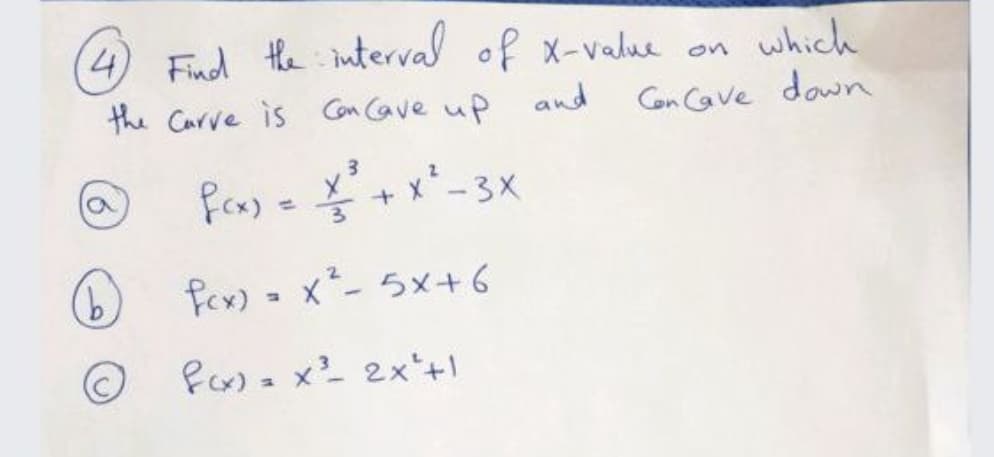 ④ Find the interval of x-value on which
the Curve is Concave up and Concave down
ⓐ f(x) = x³/3 + x² - 3x
ⓑ f(x) = x² - 5x + 6
ⓒ f(x) = x³ - 2x² + 1